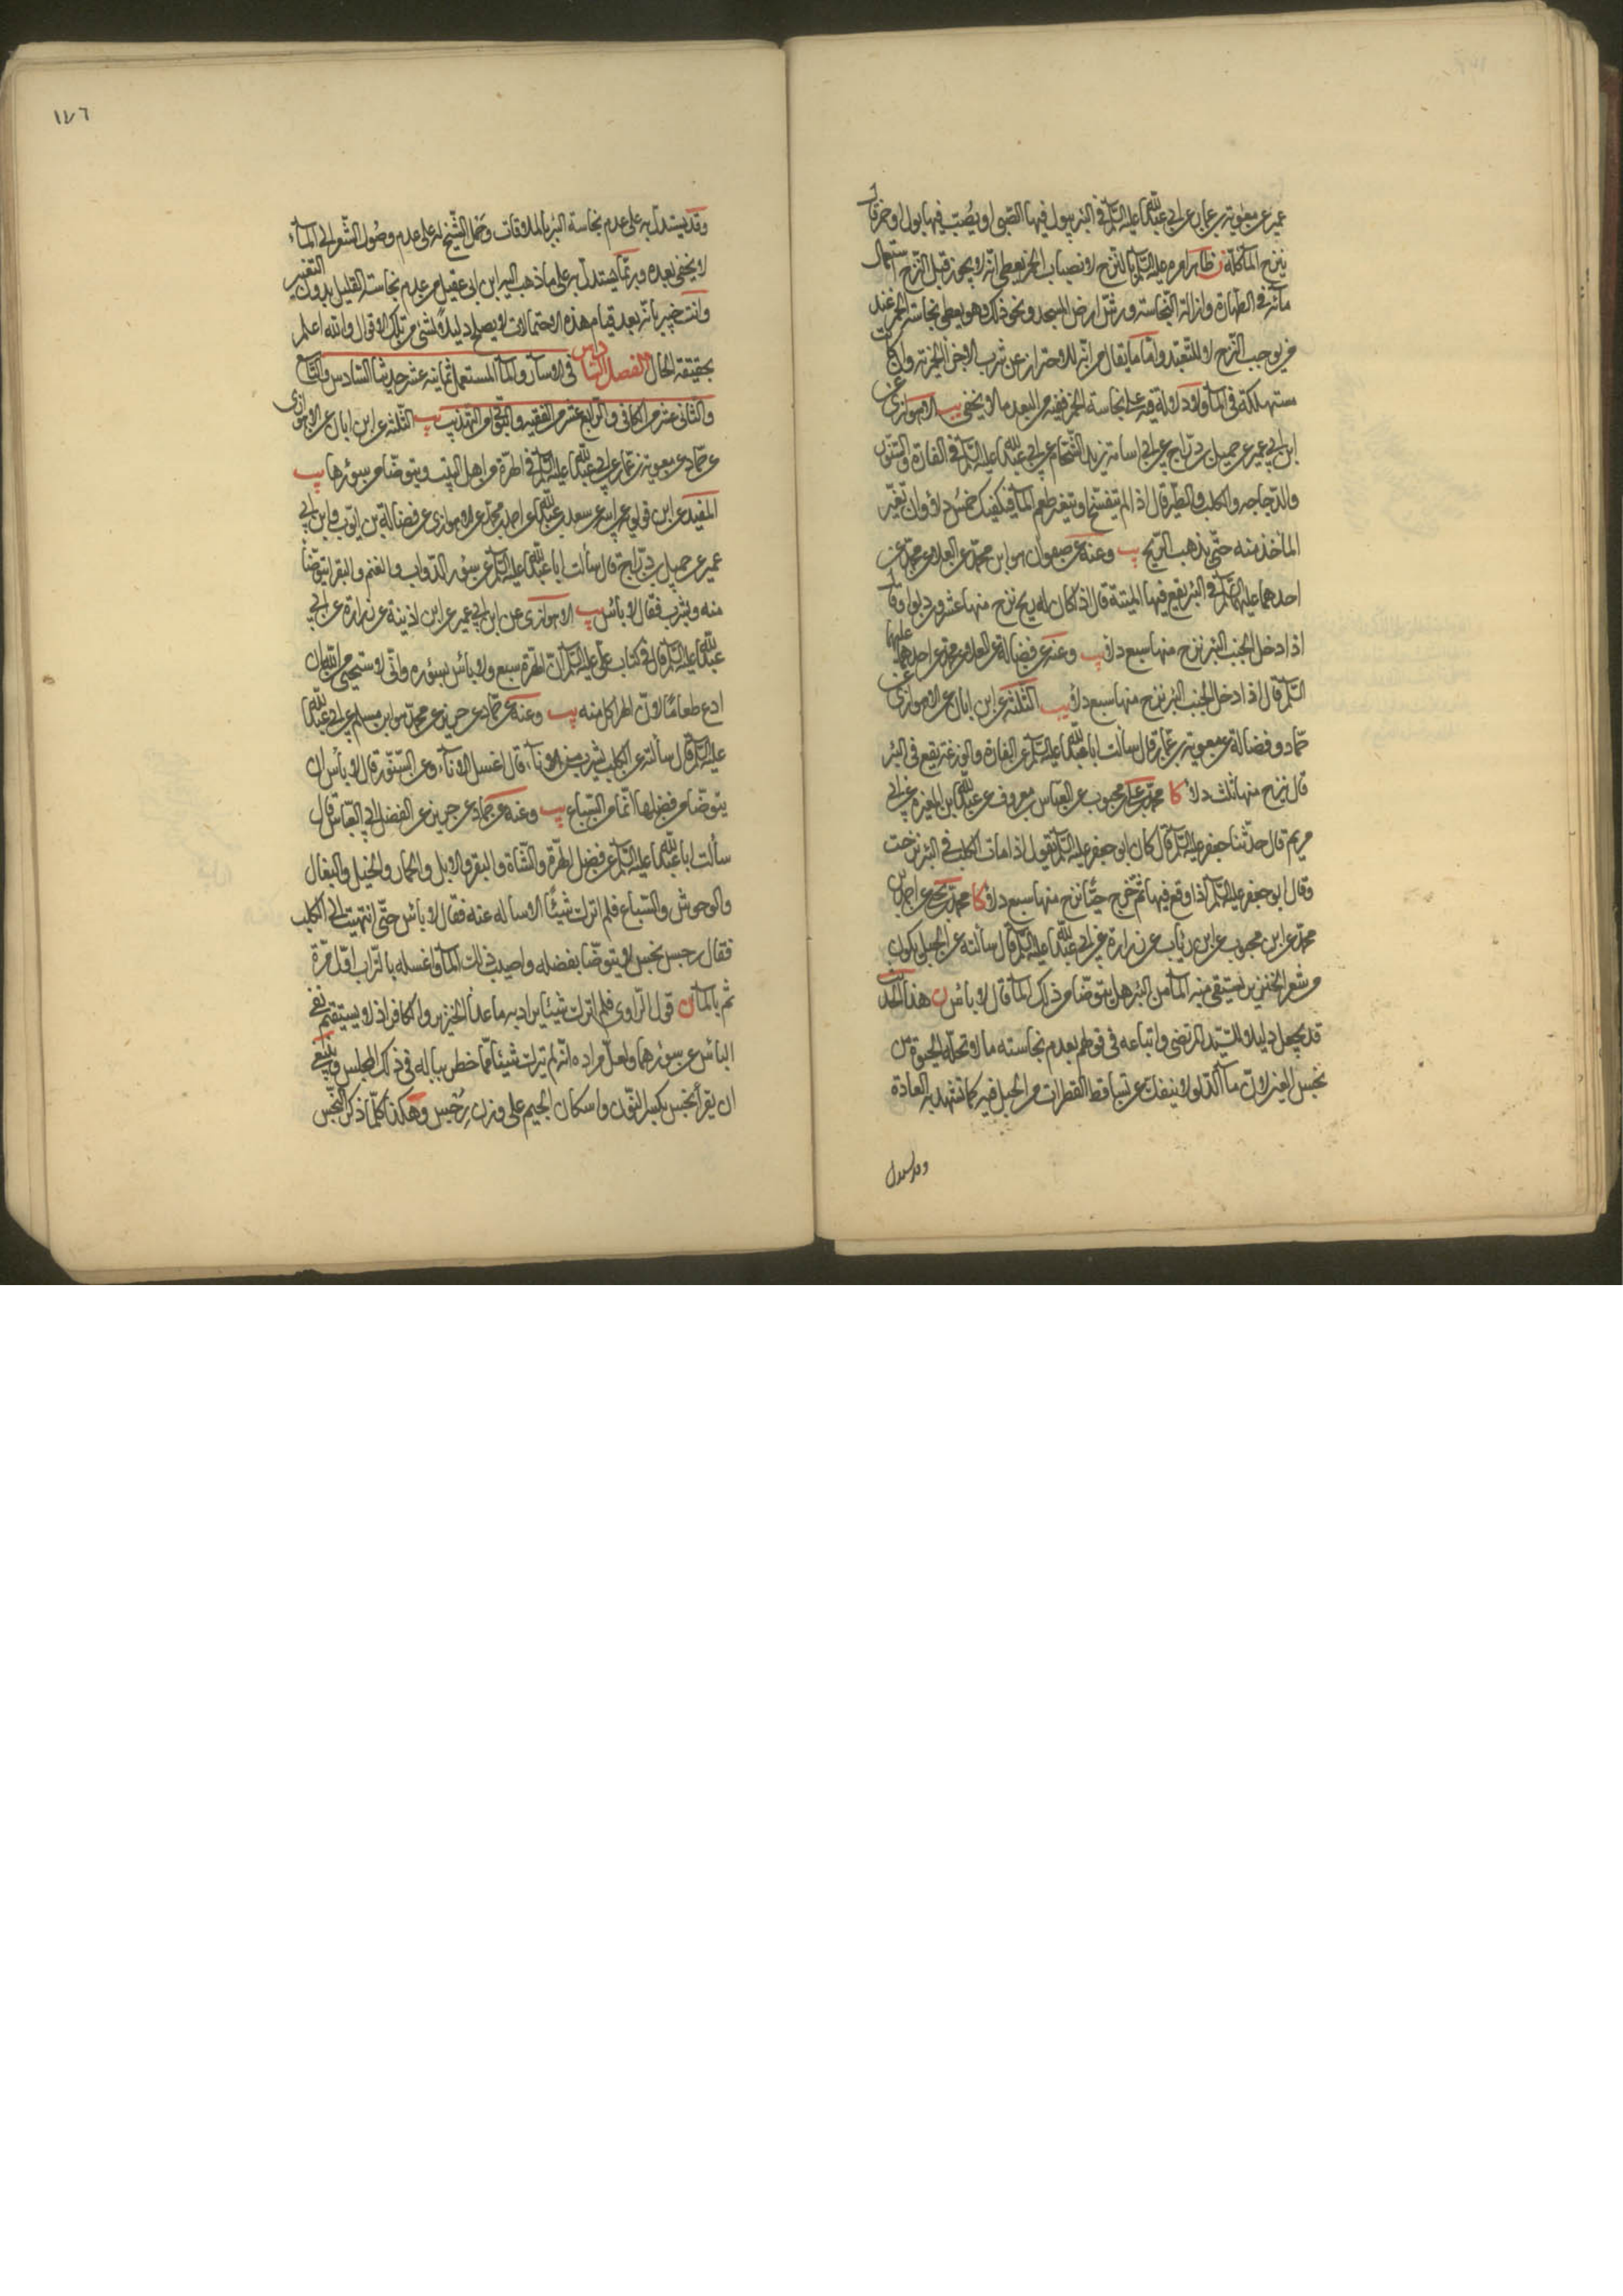 عمير عن معوية بن عمار عن ابي عبدالله عليه السلم في البئر يبول فيها الصبي او يصب فيها بول او خمر قال
ينزح الماء كله ن ظاهر امره عليه السلم بالنزح لانصباب الخمر يعطي انه لا يجوز قبل النزح استعمال
مائه في الطهارة وازالة النجاسة ورش ارض المسجد ونحو ذلك وهو يعطي نجاسة الخمر عند
من يوجب النزح لا للتعبد واما ما يقال من انه للاحتراز عن شرب الاجزاء الخمرية وان كانت
مستهلكة في الماء فلا دلالة فيه على نجاسة الخمر ففيه من البعد ما لا يخفى يب الاهوازي عن
ابن ابي عمير عن جميل بن دراج عن ابي اسامة زيد الشحام عن ابي عبدالله عليه السلم في الفارة والسنور
والدجاجه والكلب والطير قال اذا لم يتفسخ او يتغير طعم الماء فيكفيك خمس دلاء وان تغير
الماء فخذ منه حتى يذهب الريح يب وعنه عن صفوان هو ابن محمد عن العلا عن محمد عن
احدهما عليهما السلم في البئر يقع فيها الميتة قال اذا كان له ريح نزح منها عشرون دلوا وقال
اذا دخل الجنب البئر نزح منها سبع دلاء يب وعنه عن فضالة عن العلا عن محمد عن احدهما عليهما
السلم قال اذا دخل الجنب البئر نزح منها سبع دلاء يب الثلثة عن ابن ابان عن الاهوازي عن
حماد وفضالة عن معوية بن عمار قال سألت ابا عبدالله عليه السلم عن الفارة والوزغة يقع في البئر
قال ينزح منها ثلث دلاء كا محمد عن علي بن محبوب عن العباس بن معروف عن عبدالله ابن المغيرة عن ابي
مريم قال حدثنا جعفر عليه السلم قال كان ابو جعفر عليه السلم يقول اذا مات الكلب في البئر نزحت
وقال ابو جعفر عليه السلم اذا وقع فيها ثم اخرج حيا نزح منها سبع دلاء كا محمد بن يحيى عن احمد بن
محمد عن ابن محبوب عن ابن رئاب عن زرارة عن ابي عبدالله عليه السلم قال سألته عن الحبل يكون
من شعر الخنزير يستقى به الماء من البئر هل يتوضأ من ذلك الماء قال لا بأس ن هذا الحديث
قد يجعل دليلا للسيد المرتضى واتباعه في قولهم بعدم نجاسته ما لا تحله الحيوة من
نجس العين لان ماء الدلو لا ينفك عن تساقط القطرات من الحبل فيه كما تشهد به العادة
وقد يستدل
١٧٦
وقد يستدل به على عدم نجاسة البئر بالملاقات وحمل الشيخ له على عدم وصول الشعر الى الماء
لا يخفى بعده وربما يستدل به على ما ذهب اليه ابن ابي عقيل من عدم نجاسة القليل بدون التغير
وانت خبير بانه بعد قيام هذه الاحتمالات لا يصلح دليلا لشئ من تلك الاقوال والله اعلم
بحقيقة الحال الفصل السادس في الاسآر والماء المستعمل ثمانية عشر حديثا السادس والتاسع
والثاني عشر من الكافي والرابع عشر من الفقيه والبواقي من التهذيب يب الثلثة عن ابن ابان عن الاهوازي
عن حماد عن معوية بن عمار عن ابي عبدالله عليه السلم في الهرة من اهل البيت ويتوضأ من سؤرها يب
المفيد عن ابن قولويه عن ابيه عن سعد بن عبدالله عن احمد بن محمد عن الاهوازي عن فضالة بن ايوب وابن ابي
عمير عن جميل بن دراج قال سألت ابا عبدالله عليه السلم عن سؤر الدواب والغنم والبقر ايتوضأ
منه ويشرب فقال لا بأس يب الاهوازي عن ابن ابي عمير عن ابن اذينة عن زرارة عن ابي
عبدالله عليه السلم قال في كتاب علي عليه السلم ان الهرة سبع ولا بأس بسؤره واني لاستحيي من الله ان
ادع طعاما لان الهر اكل منه يب وعنه عن حماد عن حريز عن محمد هو ابن مسلم عن ابي عبدالله
عليه السلم قال سألته عن الكلب يشرب من الاناء قال اغسل الاناء وعن السنور قال لا بأس ان
يتوضأ من فضلها انما هي من السباع يب وعنه عن حماد عن حريز عن الفضل ابي العباس قال
سألت ابا عبدالله عليه السلم عن فضل الهرة والشاة والبقرة والابل والحمار والخيل والبغال
والوحوش والسباع فلم اترك شيئا الا سالته عنه فقال لا بأس حتى انتهيت الى الكلب
فقال رجس نجس لا يتوضأ بفضله واصبب ذلك الماء واغسله بالتراب اول مرة
ثم بالماء ن قول الراوي فلم اترك شيئا يراد به ما عدا الخنزير والكافر اذ لا يستقيم نفي
البأس عن سؤرهما ولعل مراده انه لم يترك شيئا مما خطر بباله في ذلك المجلس وينبغي
ان يقرأ نجس بكسر النون واسكان الجيم على وزن رجس وهكذا كلما ذكر النجس